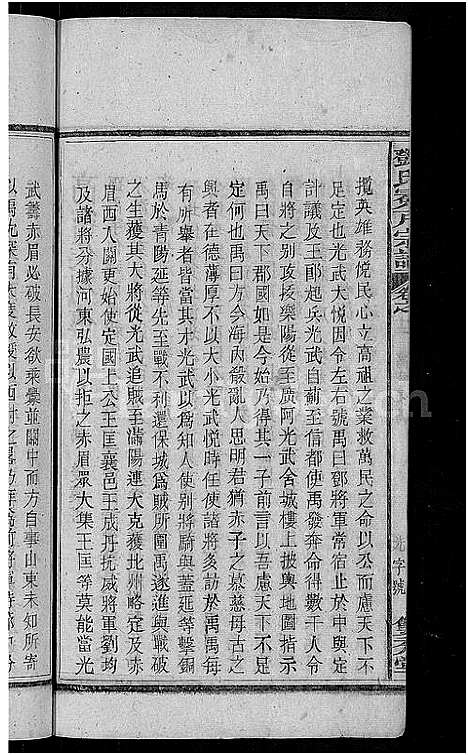 攬英雄務悅民心立高祖之業救萬民之命以公而慮天下不
足定也光武大悅因令左右號禹曰鄧將軍常宿止於中與定
計議及王郎起兵光武自薊至信都使禹發奔命得數千人令
自將之別攻拔樂陽從至廣阿光武舍城樓上披輿地圖指示
禹曰天下郡國如是今始乃得其一子前言以吾慮天下不足
定何也禹曰方今海內殽亂人思明君猶赤子之慕慈母古之
興者在德薄厚不以大小光武悅時任使諸將多訪於禹禹每
有所舉者皆當其才光武以為知人使別將騎與蓋延等擊銅
馬於青陽延等先至戰不利還保城為賊所圍禹遂進與戰破
之生獲其大將從光武追賊至滿陽連大克獲北州略定及赤
眉西入關更始使定國上公王匡襄邑王成丹抗威將軍劉均
及諸將分據河東弘農以拒之赤眉眾大集王匡等莫能當光
武籌赤眉必破長安欲乘釁並關中而方自事山東未知所寄